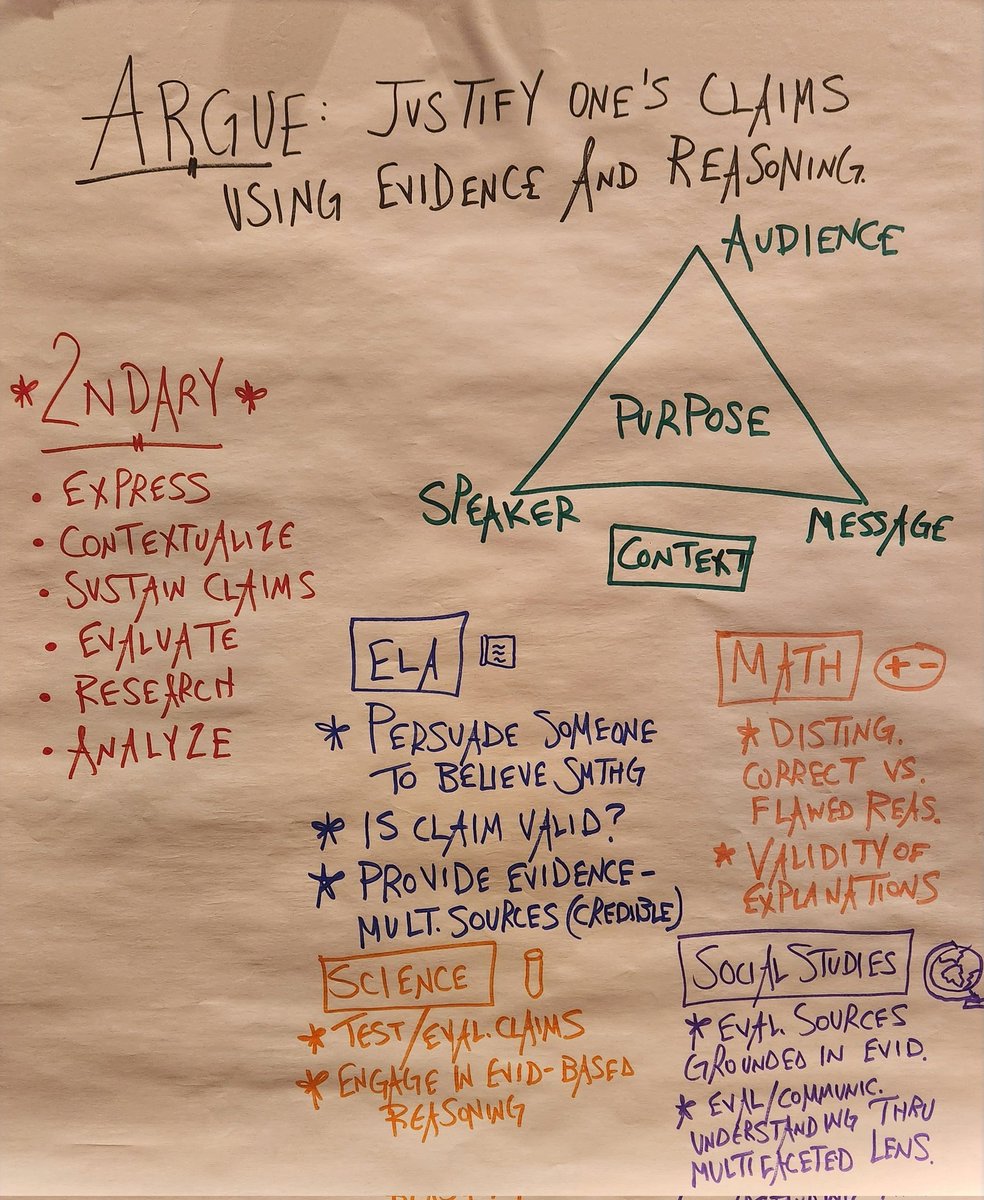 ARGUE: JUSTIFY ONE'S CLAIMS
USING EVIDENCE AND REASONING.
AUDIENCE
PURPOSE
SPEAKER
MESSAGE
CONTEXT
* 2NDARY *
• EXPRESS
• CONTEXTUALIZE
• SUSTAIN CLAIMS
• EVALUATE
• RESEARCH
• ANALYZE
ELA
* PERSUADE SOMEONE
TO BELIEVE SMTHG
* IS CLAIM VALID?
* PROVIDE EVIDENCE-
MULT. SOURCES (CREDIBLE)
MATH + -
* DISTING.
CORRECT VS.
FLAWED REAS.
* VALIDITY OF
EXPLANATIONS
SCIENCE
* TEST/EVAL. CLAIMS
* ENGAGE IN EVID-BASED
REASONING
SOCIAL STUDIES
* EVAL. SOURCES
GROUNDED IN EVID.
* EVAL/COMMUNIC.
UNDERSTANDING THRU
MULTIFACETED LENS.